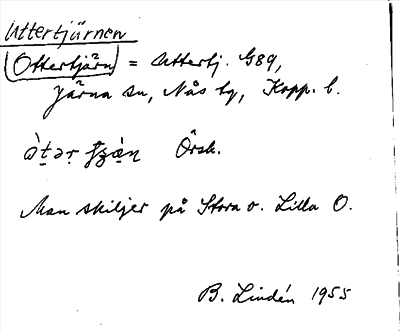 Uttertjärnen
(Ottertjärn) = Uttertj. G89,
Järna sn, Nås tg, Kopp. l.
Örsb.
Man skiljer på Stora o. Lilla O.
B. Lindén 1955